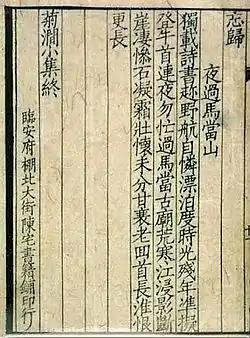 忘歸
夜過馬當山
獨載詩書趂野航自憐漂泊度時光殘年準擬
登牛首連夜勿忙過馬當古廟荒寒江浸影斷
崖淒慘石凝霜壯懷未分甘衰老回首長淮恨
更長
菊澗小集終
臨安府棚北大街陳宅書籍鋪印行